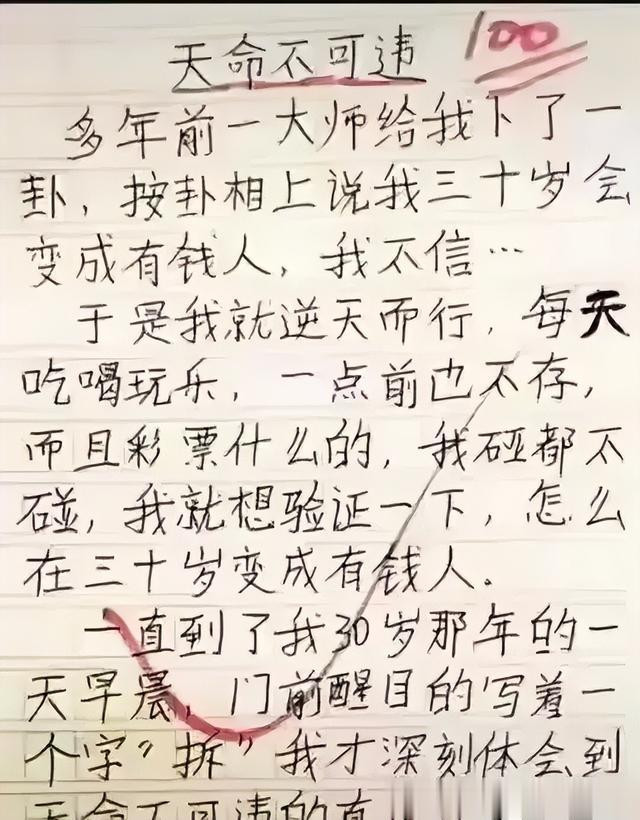 天命不可违
100
多年前一大师给我下了一
卦，按卦相上说我三十岁会
变成有钱人，我不信…
于是我就逆天而行，每天
吃喝玩乐，一点前也不存，
而且彩票什么的，我碰都不
碰，我就想验证一下，怎么
在三十岁变成有钱人。
一直到了我30岁那年的一
天早晨，门前醒目的写着一
个字"拆"我才深刻体会到
天命不可违的真